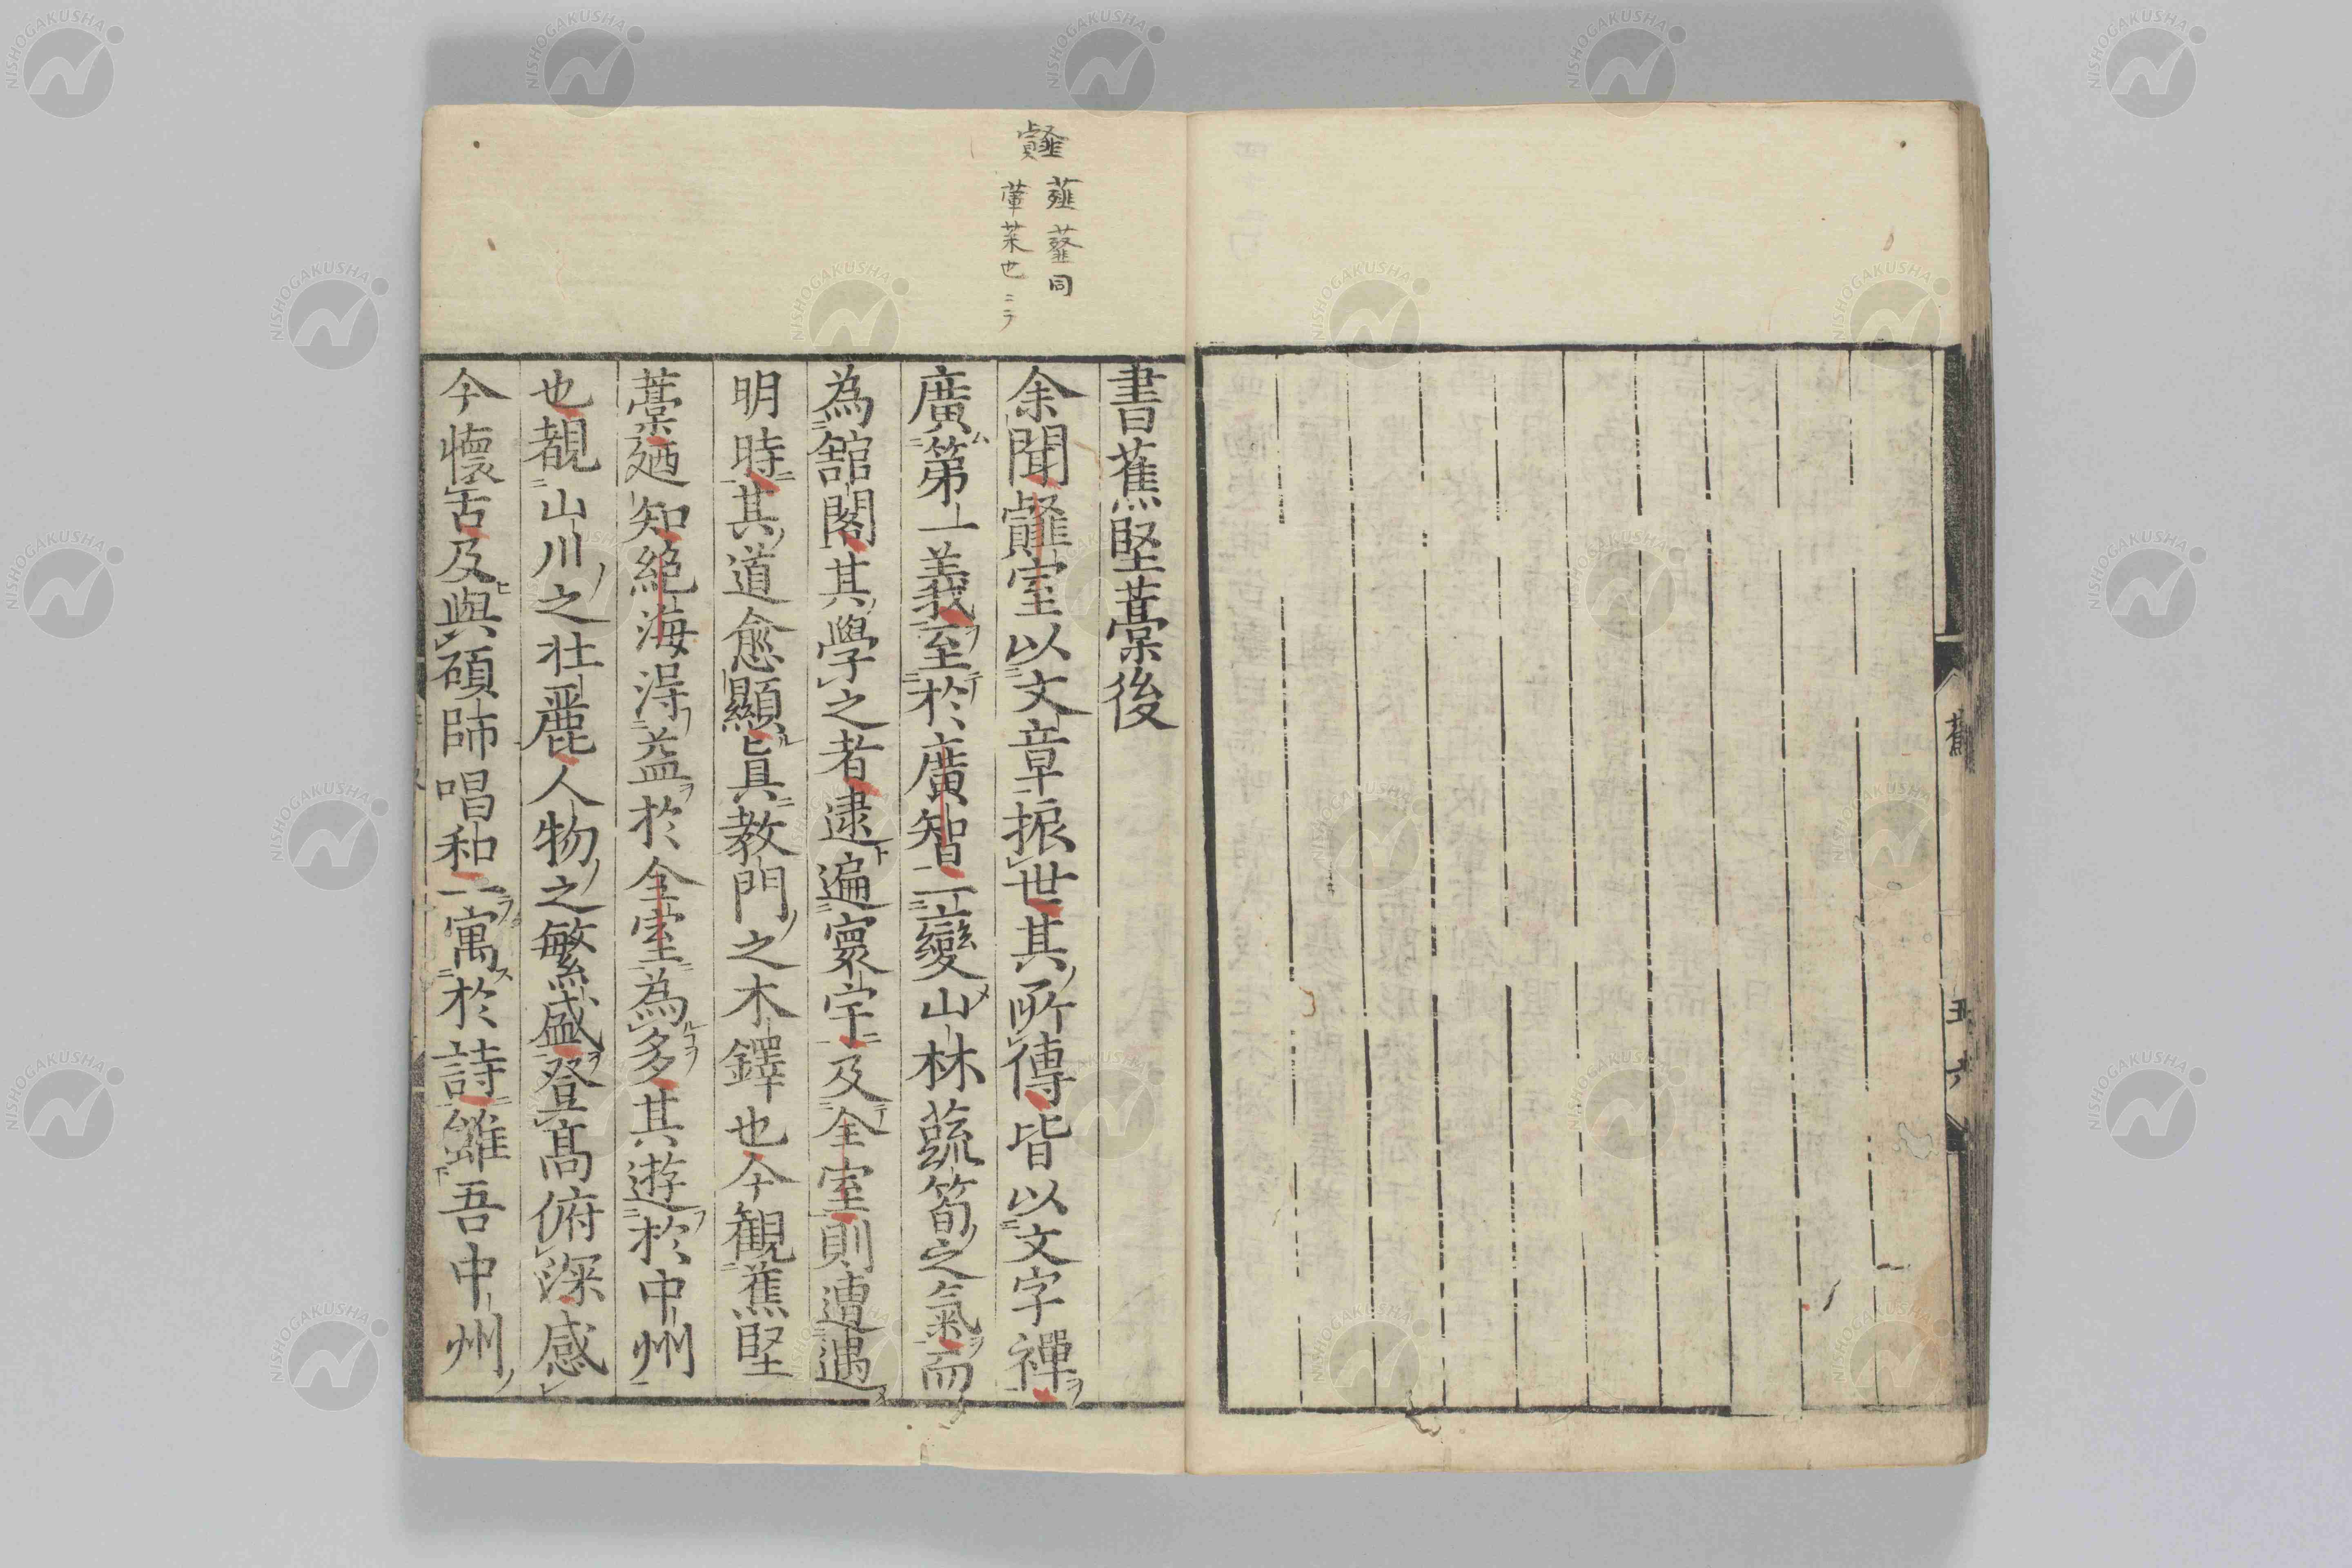 蕉
五十六
薤䪥同
葷菜也
書蕉堅藁後
余聞贒室以文章振世其所傳皆以文字禪
廣第一義至於廣智一變山林蔬筍之氣而
為舘閣其學之者逮遍寰宇及全室則遭遇
明時其道愈顯眞教門之木鐸也今觀蕉堅
藁廼知絕海得益於全室為多其遊於中州
也覩山川之壯麗人物之繁盛登髙俯深感
今懷古及與碩師唱和一寓於詩雖吾中州